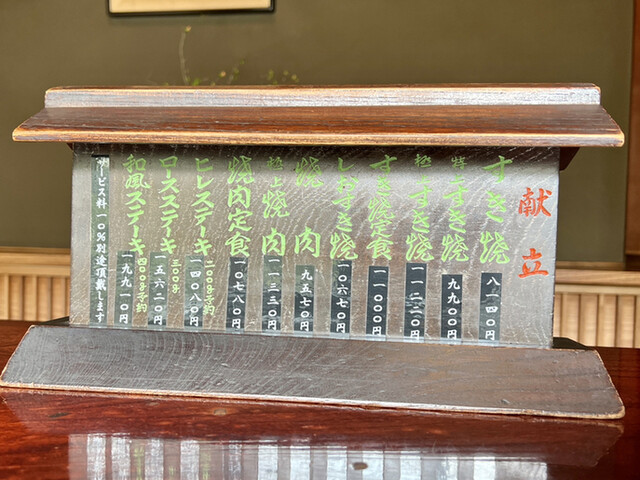 献立
すき焼 八一四〇円
特上すき焼 九九〇〇円
極上すき焼 一一二二〇円
すき焼定食 一一〇〇〇円
しおすき焼 一〇六七〇円
焼肉 九五七〇円
極上焼肉 一一三三〇円
焼肉定食 一〇七八〇円
ヒレステーキ 二〇〇g予約 一四〇八〇円
ロースステーキ 三〇〇g 一五六二〇円
和風ステーキ 四〇〇g予約 一九九一〇円
サービス料一〇%別途頂戴します